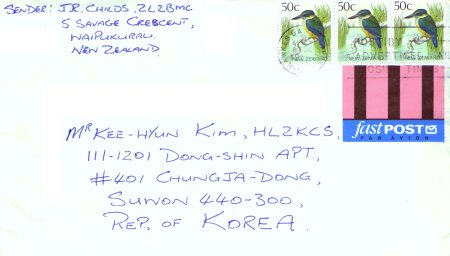 SENDER: J.R. CHILDS, ZL2BMC
5 SAVAGE CRESCENT,
WAIPUKURAU.
NEW ZEALAND
50c 50c 50c
NEW ZEALAND NEW ZEALAND NEW ZEALAND
fastPOST
PAR AVION
MR KEE-HYUN KIM, HL2KCS,
111-1201 DONG-SHIN APT,
#401 CHUNGJA-DONG,
SUWON 440-300,
REP. OF KOREA.